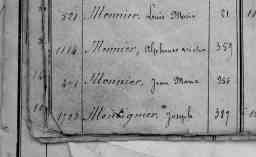 521 Monnier, Louis Marie 21
1114 Monnier, Alphonse 359
471 Monnier, Jean Marie
1793 Montignier, Joseph 387